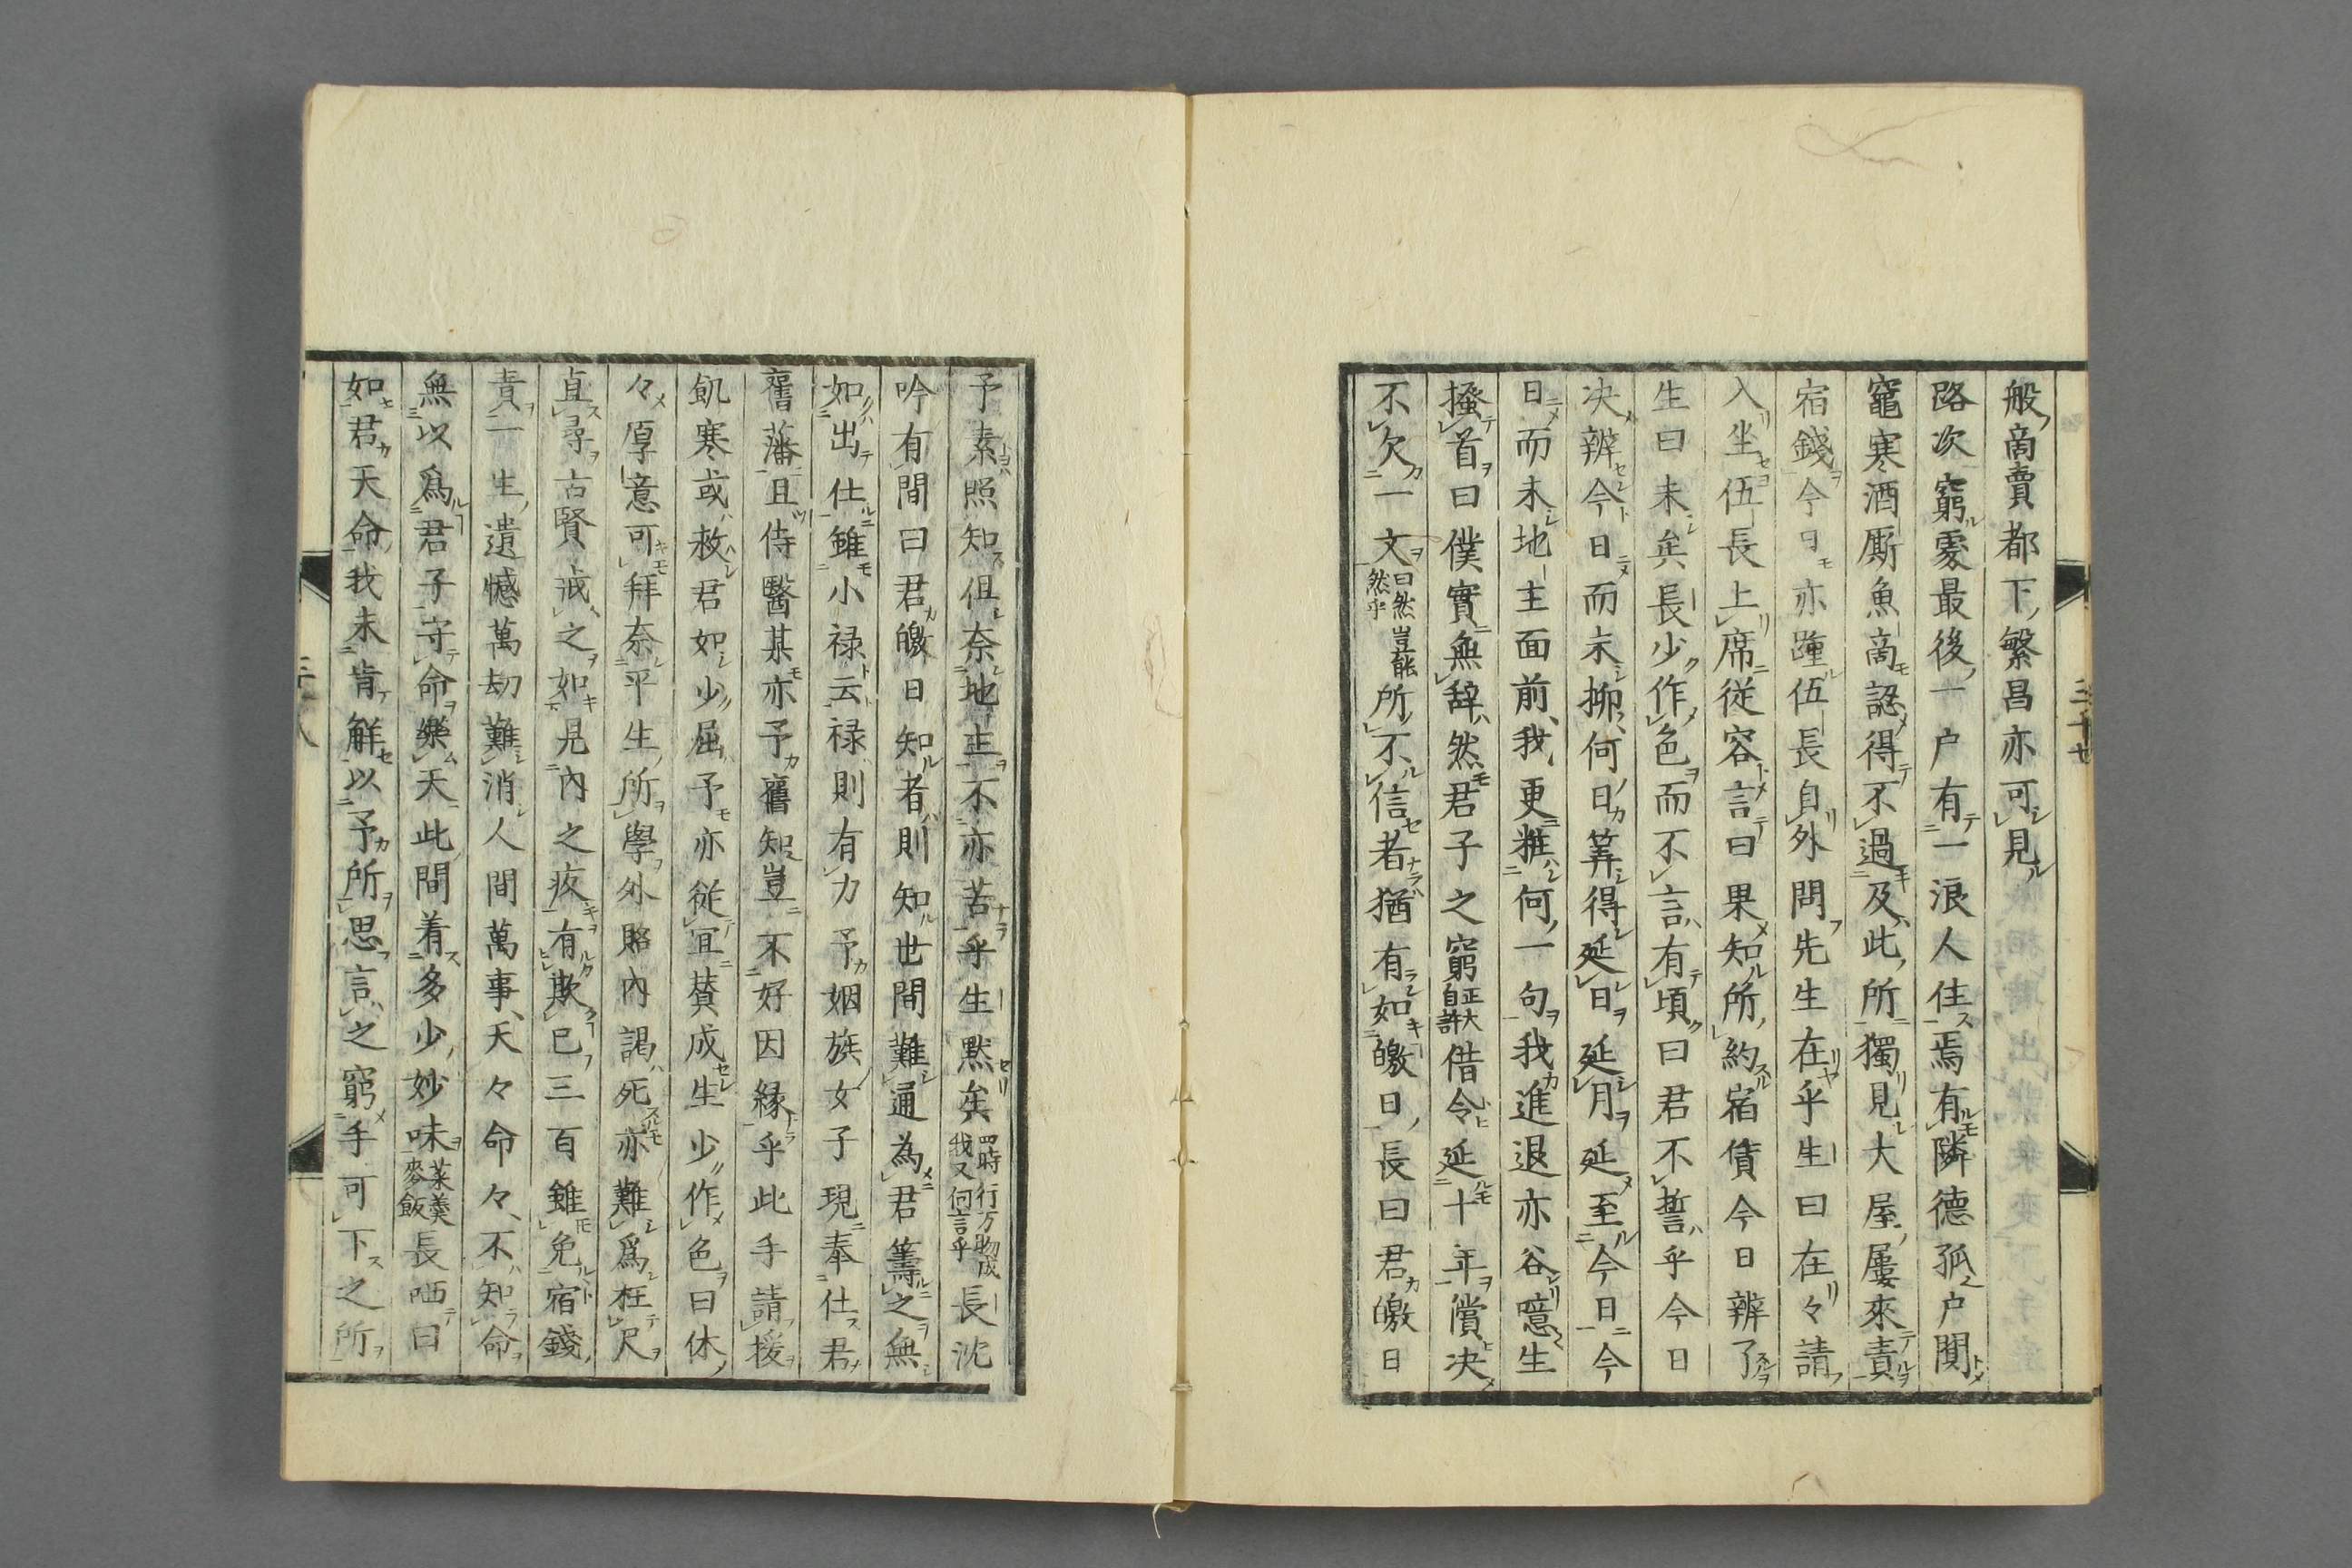 般商賣都下繁昌亦可見
路次窮處最後一户有一浪人住焉有隣德孤户閴
竈寒酒厮魚商認得不過及此所獨見大屋屡來責
宿錢今日亦踵伍長自外問先生在乎生曰在々請
入坐伍長上席從容言曰果知所約宿債今日辨了
生曰未矣長少作色而不言有頃曰君不誓乎今日
决辨今日而未抑何日筭得延日延月延至今日今
日而未地主面前我更粧何一句我進退亦谷噫生
搔首曰僕實無辞然君子之窮正大自許借令延十年償决
不欠一文曰然豈能然乎所不信者猶有如皦日長曰君皦日
三十七
予素照知但奈地主不亦苦乎生默矣四時行万物成我又何言乎長沈
吟有間曰君皦日知者則知世間難通為君籌之無
如出仕雖小禄云禄則有力予姻族女子現奉仕君
舊藩且侍醫某亦予舊知豈不好因縁乎此手請援
飢寒或救君如少屈予亦從宜賛成生少作色曰休
々厚意可拜奈平生所學外賂內謁死亦難爲枉尺
直尋古賢戒之如見內之疚有欺已三百雖免宿錢
責一生遺憾萬劫難消人間萬事天々命々不知命
無以爲君子守命樂天此間着多少妙味菜羹麥飯長哂曰
如君天命我未肯解以予所思言之窮手可下之所